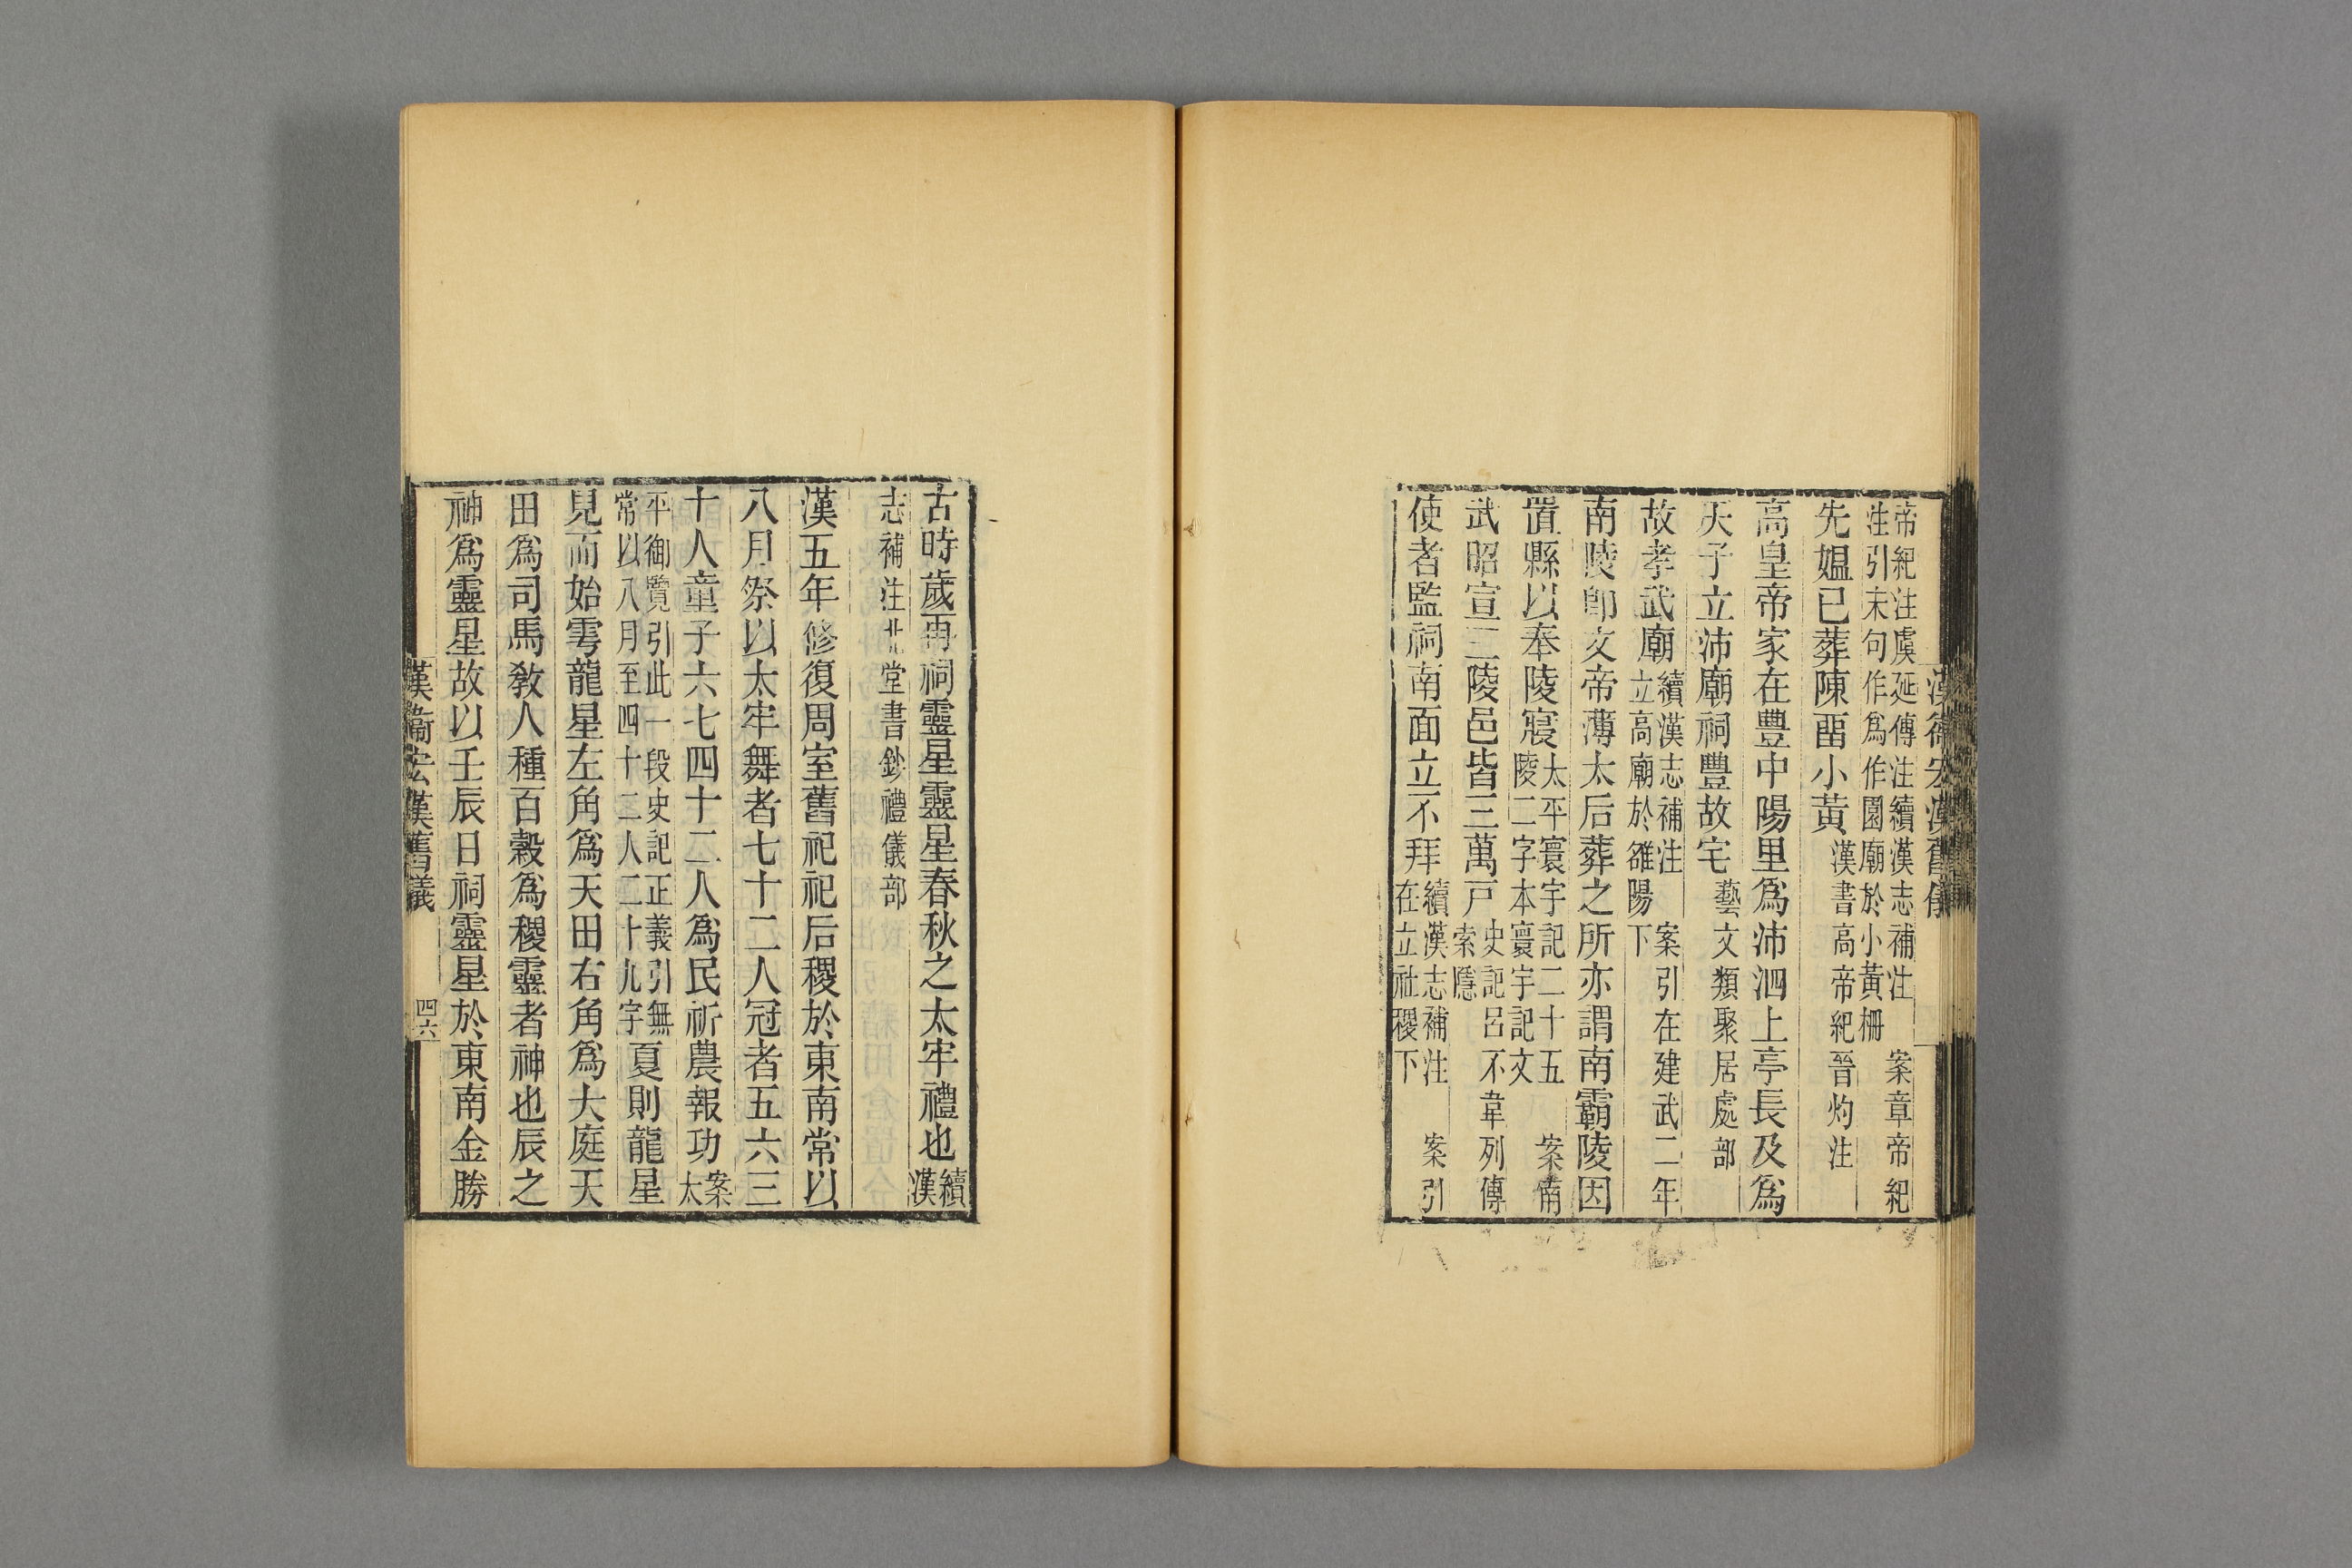 漢衛宏漢舊儀
帝紀注虞延傳注續漢志補注　案章帝紀
注引末句作爲作園廟於小黃柵
先媼已葬陳畱小黃漢書高帝紀晉灼注
高皇帝家在豐中陽里爲沛泗上亭長及爲
天子立沛廟祠豐故宅藝文類聚居處部
故孝武廟續漢志補注　案引在建武二年
立高廟於雒陽下
南陵卽文帝薄太后葬之所亦謂南霸陵因
置縣以奉陵寢太平寰宇記二十五　案南
陵二字本寰宇記文
武昭宣三陵邑皆三萬戸史記呂不韋列傳
索隱
使者監祠南面立不拜續漢志補注　案引
在立社稷下
古時歲再祠靈星靈星春秋之太牢禮也續
漢
志補注北堂書鈔禮儀部
漢五年修復周室舊祀祀后稷於東南常以
八月祭以太牢舞者七十二人冠者五六三
十人童子六七四十二人爲民祈農報功案
太
平御覽引此一段史記正義引無
常以八月至四十二人二十九字夏則龍星
見而始雩龍星左角爲天田右角爲大庭天
田爲司馬敎人種百穀爲稷靈者神也辰之
神爲靈星故以壬辰日祠靈星於東南金勝
漢衛宏漢舊儀　四六